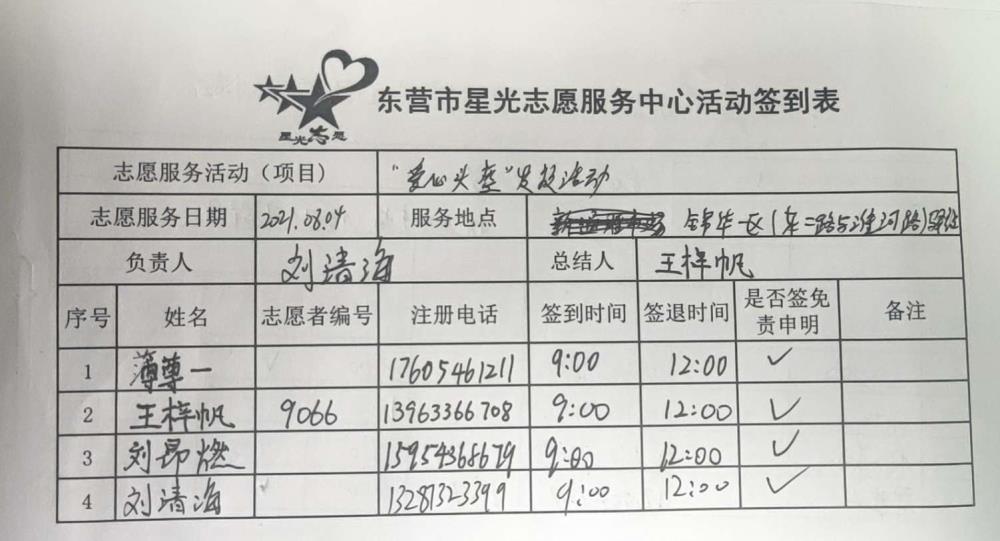 星光志愿
东营市星光志愿服务中心活动签到表
志愿服务活动（项目） “爱心头盔”发放活动
志愿服务日期 2021.08.04 服务地点 锦华一区（东二路与淮河路）
负责人 刘清海 总结人 王梓帆
序号 姓名 志愿者编号 注册电话 签到时间 签退时间 是否签免责申明 备注
1 薄尊一 17605461211 9:00 12:00 ✓
2 王梓帆 9066 13963366708 9:00 12:00 ✓
3 刘昂燃 15954368679 9:00 12:00 ✓
4 刘清海 13287323399 9:00 12:00 ✓